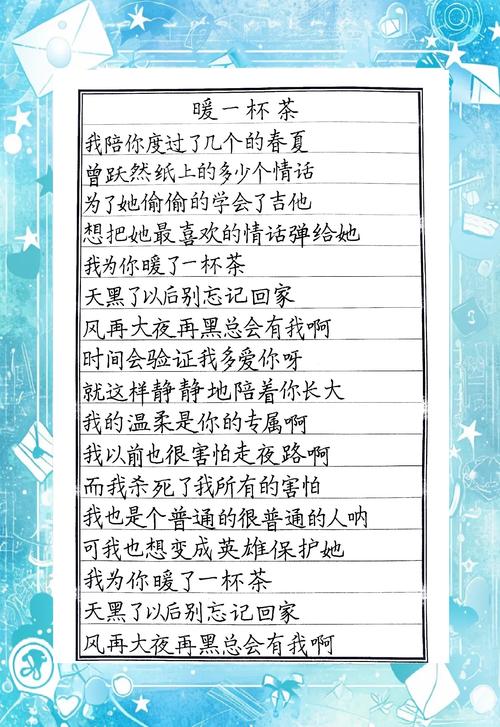 暖一杯茶
我陪你度过了几个的春夏
曾跃然纸上的多少个情话
为了她偷偷的学会了吉他
想把她最喜欢的情话弹给她
我为你暖了一杯茶
天黑了以后别忘记回家
风再大夜再黑总会有我啊
时间会验证我多爱你呀
就这样静静地陪着你长大
我的温柔是你的专属啊
我以前也很害怕走夜路啊
而我杀死了我所有的害怕
我也是个普通的很普通的人呐
可我也想变成英雄保护她
我为你暖了一杯茶
天黑了以后别忘记回家
风再大夜再黑总会有我啊